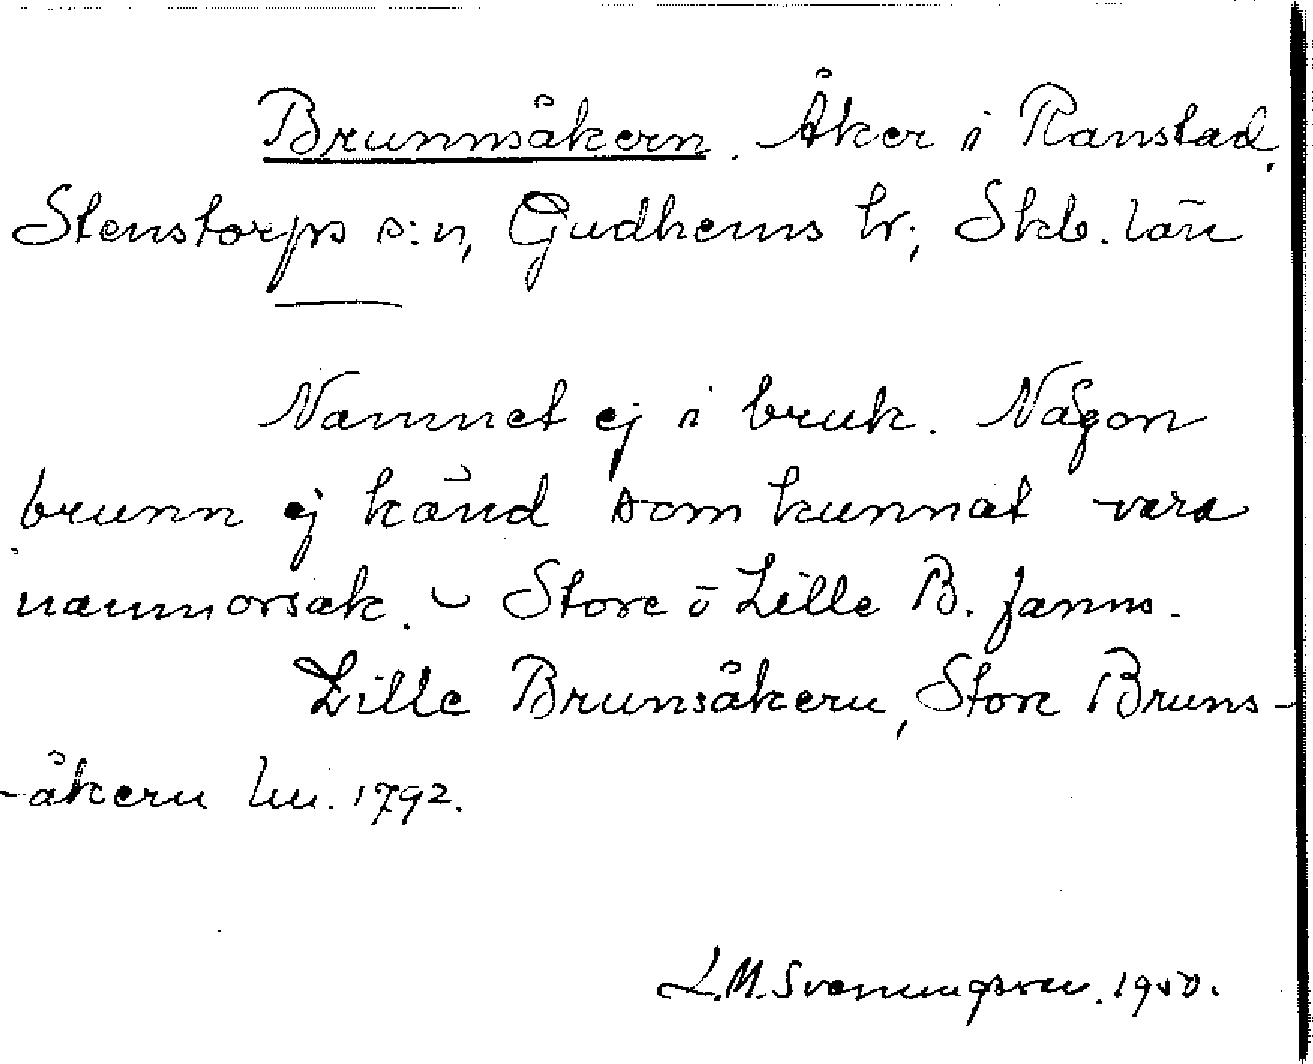 Brunnsåkern. Åker i Ranstad,
Stenstorps s:n, Gudhems hr; Skb. län
Namnet ej i bruk. Någon
brunn ej känd som kunnat vara
namnorsak. - Store o Lille B. fanns.
Lille Brunsåkern, Store Bruns-
-åkern lm. 1792.
L.M. Svenungsson. 1950.